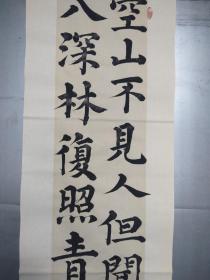 空山不見人但聞
入深林復照青